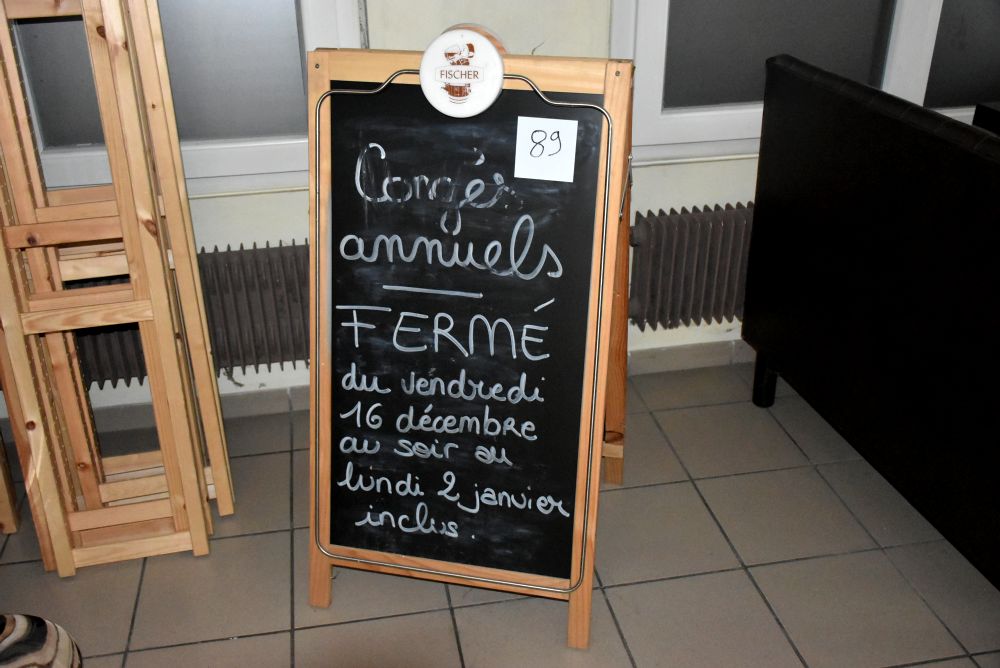 FISCHER
89
Congés
annuels
FERMÉ
du vendredi
16 décembre
au soir au
lundi 2 janvier
inclus.